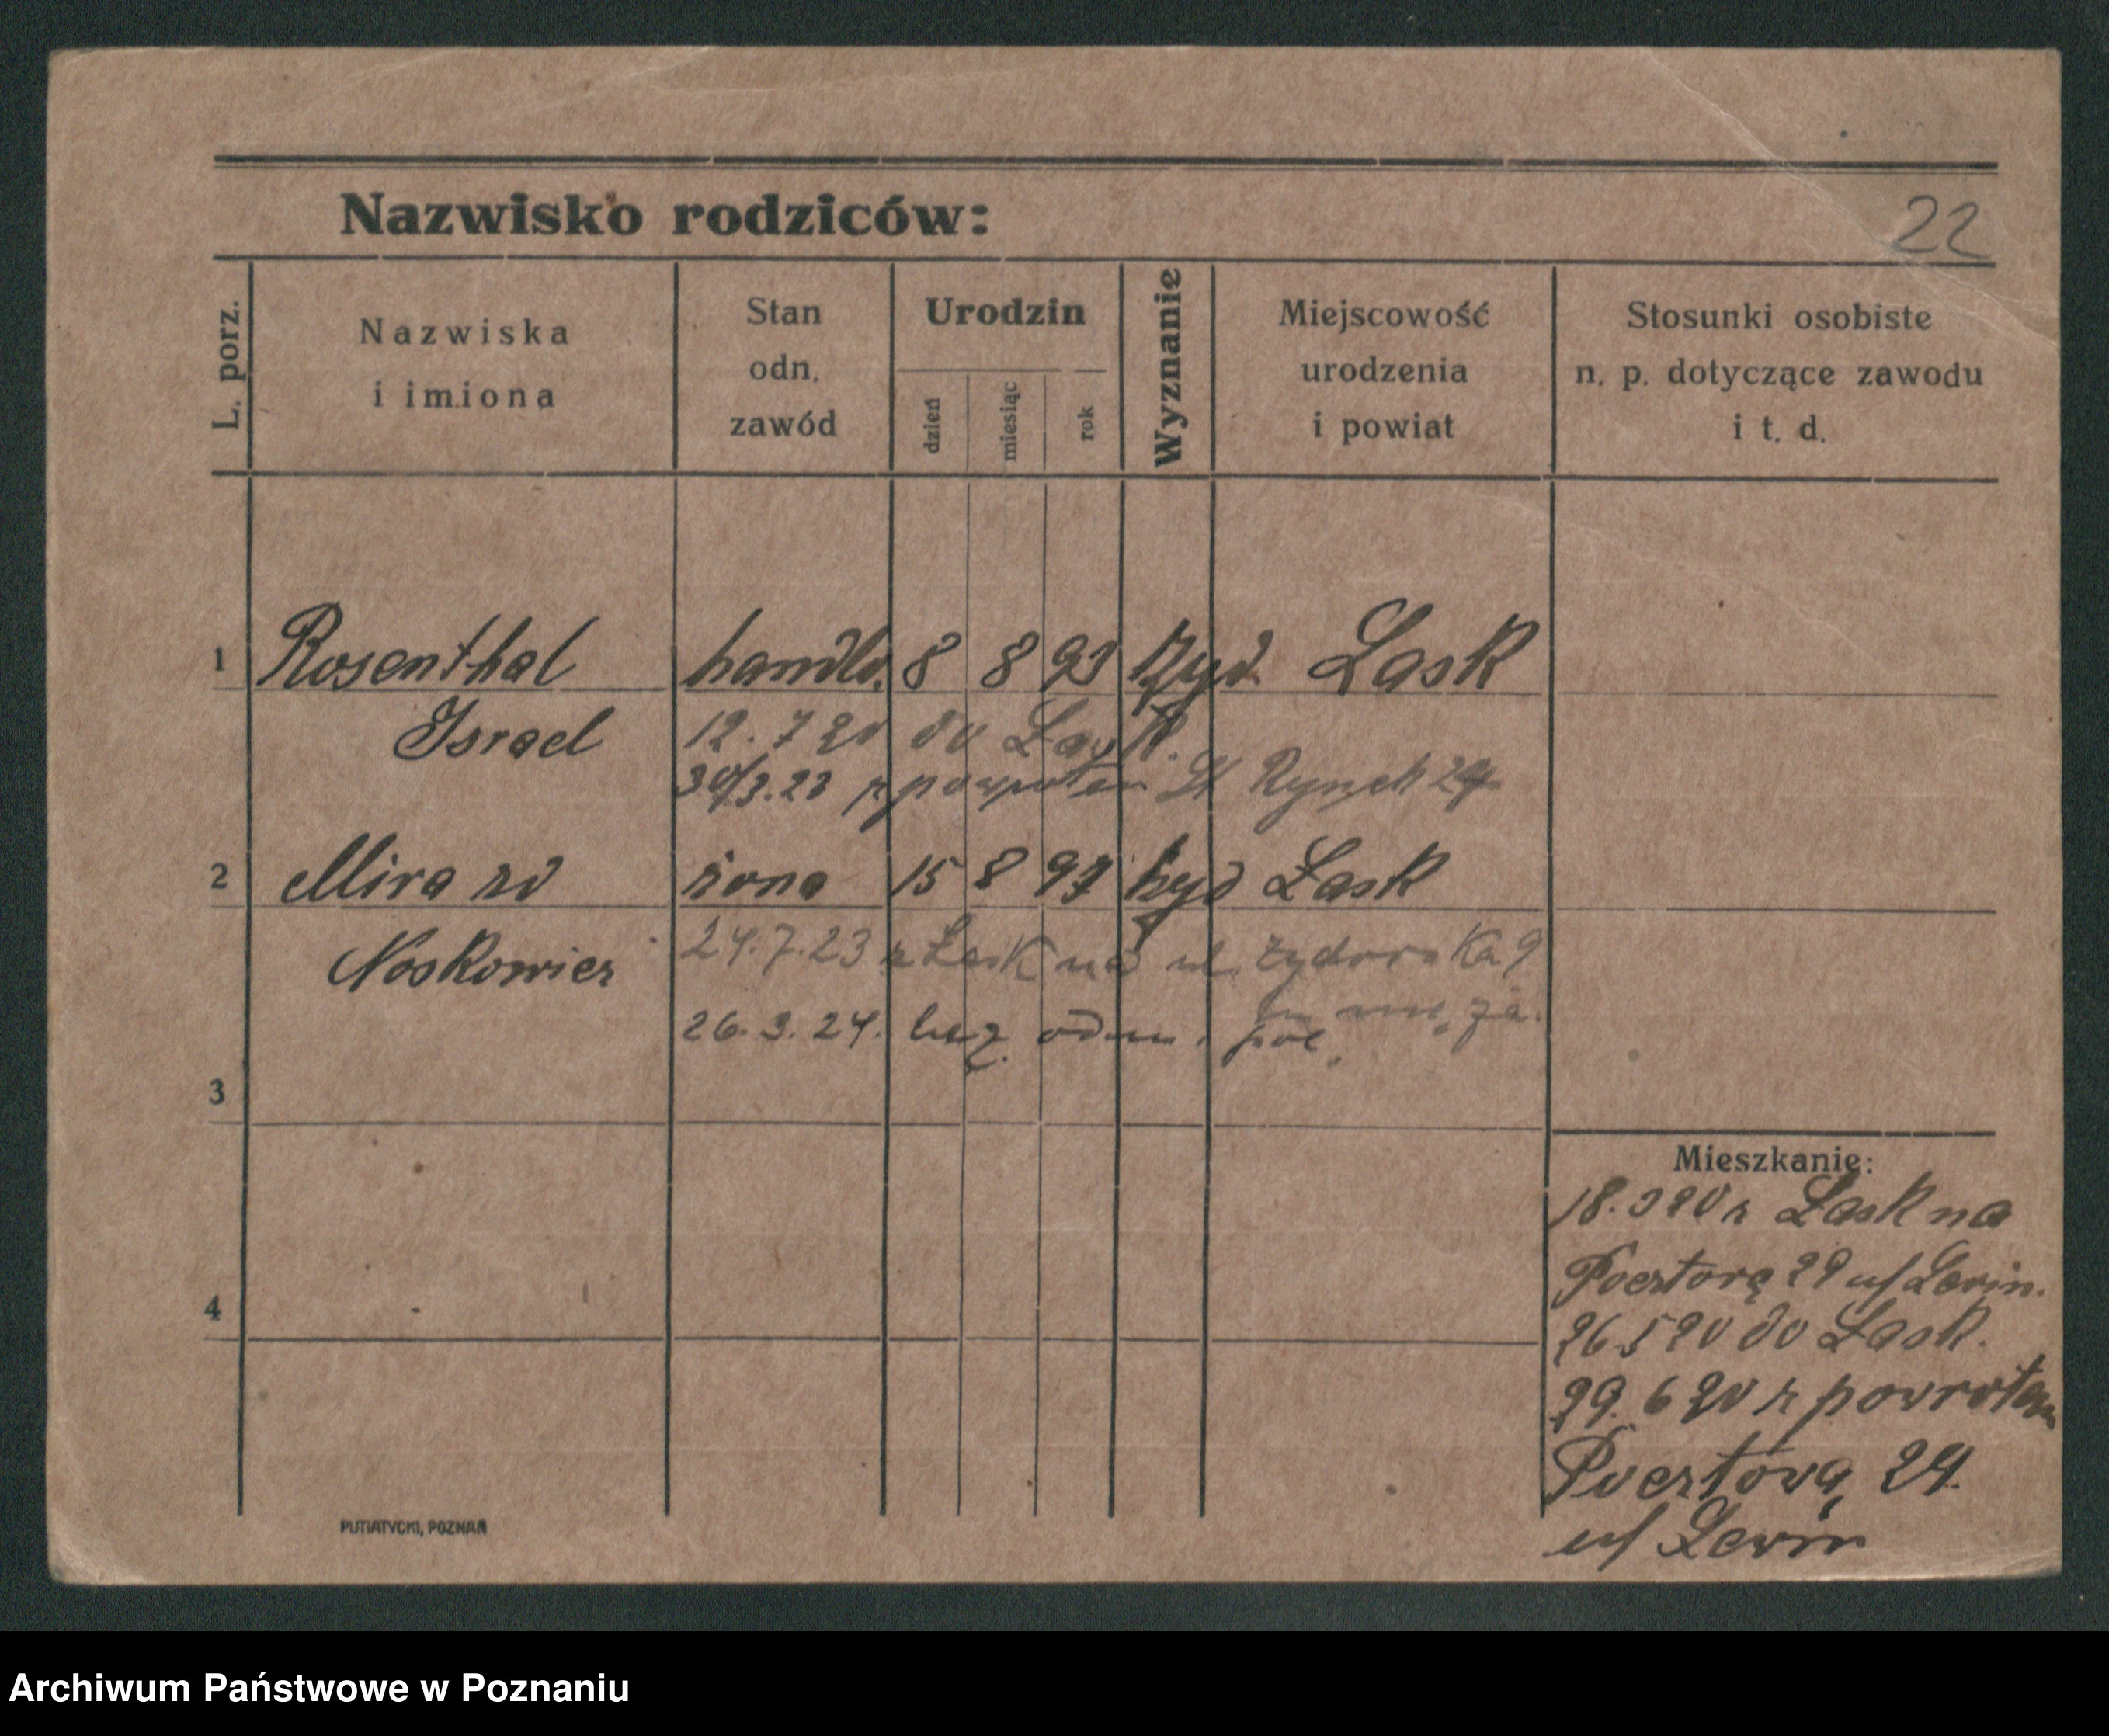 22
Nazwisko rodziców:
L. porz.
Nazwiska
i imiona
Stan
odn.
zawód
Urodzin
dzień
miesiąc
rok
Wyznanie
Miejscowość
urodzenia
i powiat
Stosunki osobiste
n. p. dotyczące zawodu
i t. d.
1 Rosenthal handlo. 8 8 93 żyd. Łask
Israel 12. 7 20 do Łask.
30/3.23 z powrotem St Rynek 24
2 Mira zd żona 15 8 97 żyd Łask
Noskowicz 24.7.23 z Łask na ul. Żydowska 9
26. 3. 24. bez odm. pol.
3
4
Mieszkanie:
18. 3 20 z Łask na
Pocztową 29 u/ Lewin.
26 5 20 do Łask.
29. 6 20 z powrotem
Pocztową 29.
u/ Lewin
PUTIATYCKI, POZNAŃ
Archiwum Państwowe w Poznaniu